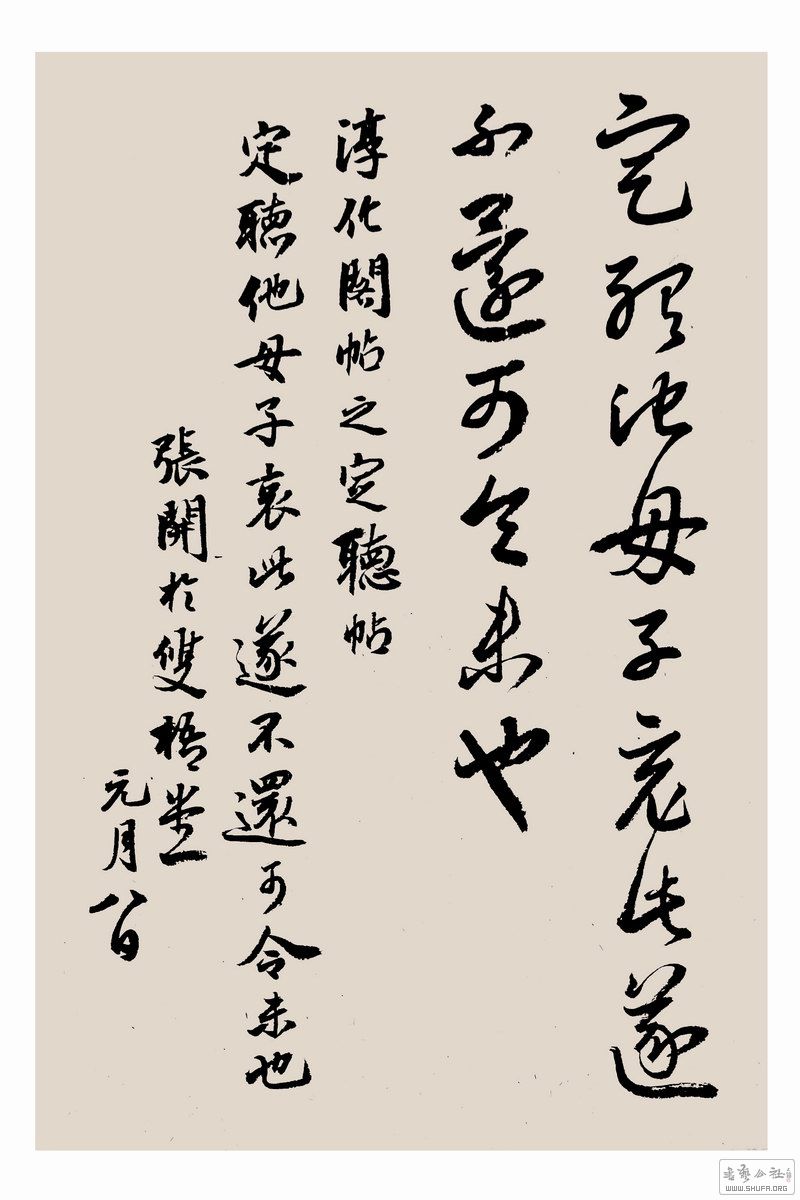 定聽他母子哀此遂
不還可令未也
淳化閣帖之定聽帖
定聽他母子哀此遂不還可令未也
張開於雙梧堂
元月八日
書藝公社
WWW.SHUFA.ORG